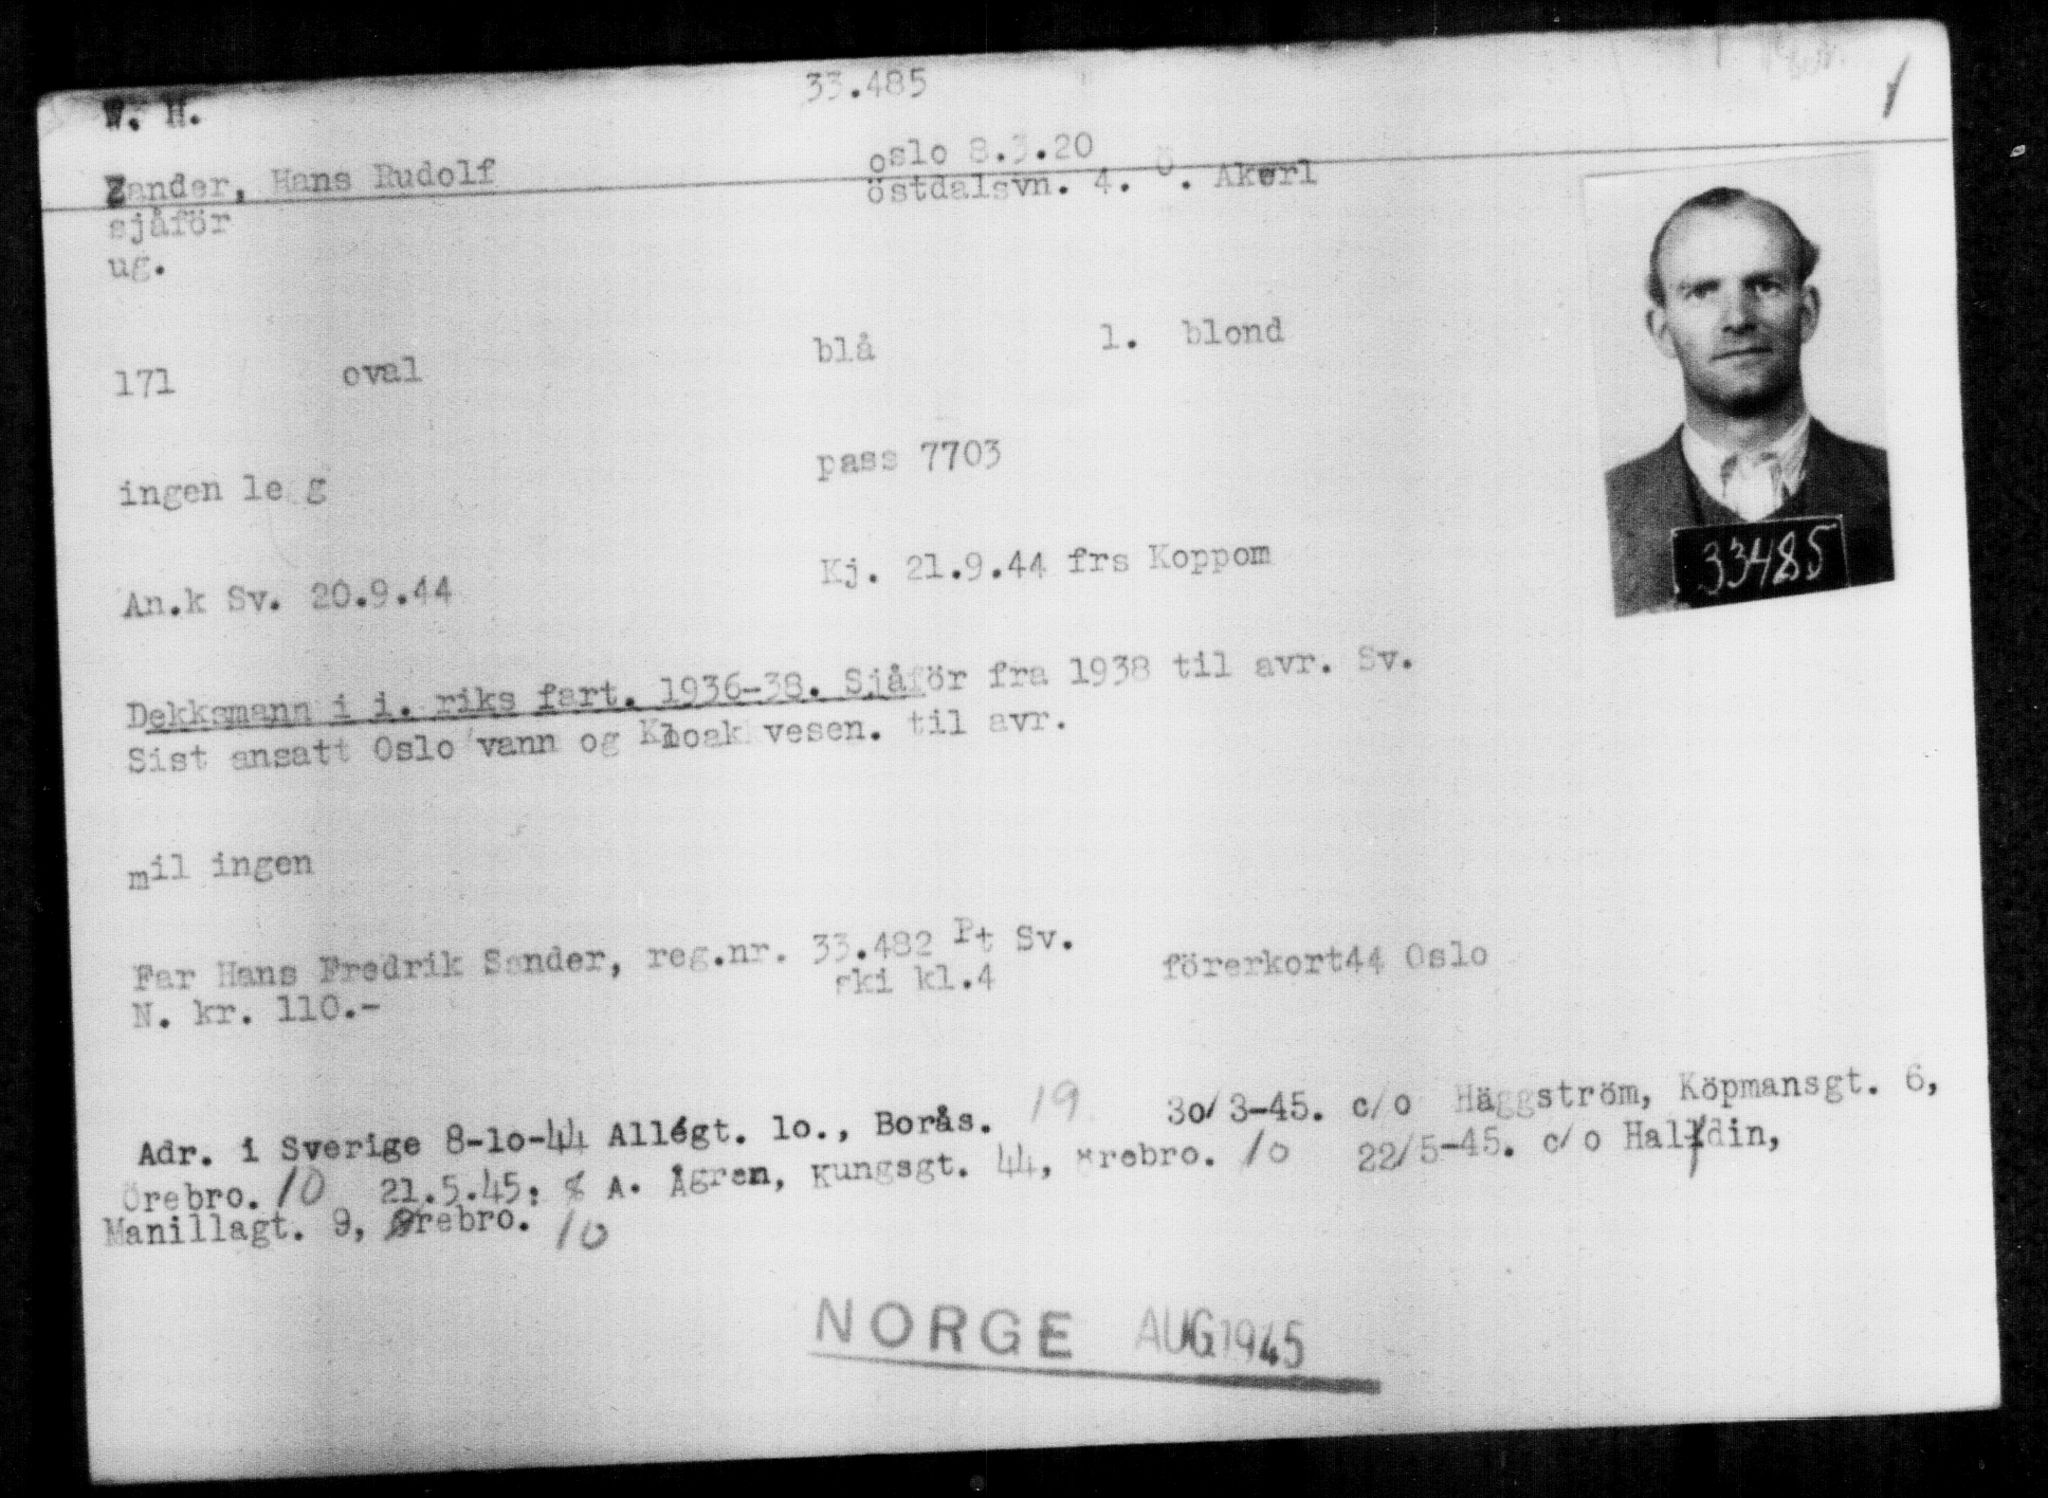 33.485
W. H.
Zander, Hans Rudolf oslo 8.3.20
sjåför östdalsvn. 4. Ö. Akerl
ug.
171 oval blå l. blond
ingen legg pass 7703
An.k Sv. 20.9.44 Kj. 21.9.44 frs Koppom
33485
Dekksmann i i. riks fart. 1936-38. Sjåför fra 1938 til avr. Sv.
Sist ansatt Oslo vann og Kloak vesen. til avr.
mil ingen
Far Hans Fredrik Sander, reg.nr. 33.482 Pt Sv. förerkort44 Oslo
N. kr. 110.- ski kl.4
Adr. i Sverige 8-lo-44 Allégt. lo., Borås. 19 3o/3-45. c/o Häggström, Köpmansgt. 6,
Örebro. 10 21.5.45: % A. Ågren, Kungsgt. 44, Örebro. 10 22/5-45. c/o Halldin,
Manillagt. 9, Örebro. 10
NORGE AUG 1945